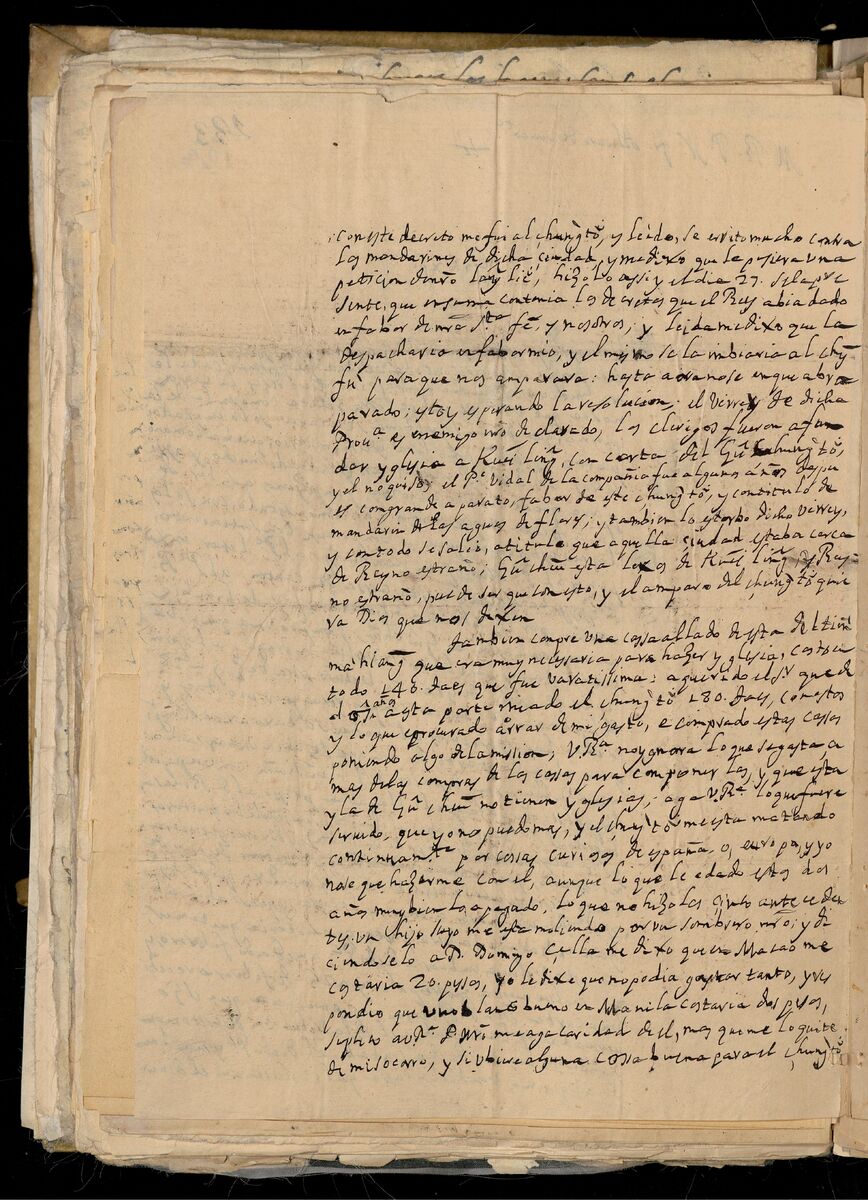 con este decreto me fui al chung̀tǒ, y leido, se irrito mucho contra
los mandarines de dicha ciudad, y me dixo que le pusiera una
peticion dentro, hizelo assi y el dia 27. se la pre
sente, que en suma contenia los decretos que el Rey abia dado
en fabor de nrã S.ta fe, y nosotros; y leida me dixo que la
despacharia en fabor mio, y el mismo se la imbiaria al chy̆
fu para que nos amparara: hasta aora no se en que abra
parado; estoy esperando la resolucion; el Virrey de dicha
Prou.a es enemigo nrõ declarado, los clerigos fueron a fun
dar yglesia a Kuei lin̄g, con carta del chung̀tǒ,
y el no quiso; el P.e Vidal de la compañia fue algunos años despu
es con grande aparato, fabor de este chung̀tǒ, y con titulo de
mandarin de las aguas de flores; y tambien lo estorbo dicho Virrey,
y con todo se salio, a titulo que aquella ciudad estaba cerca
de Reyno estraño; Gū chēu esta lexos de Kuei lin̄g, y Rey
no estraño, puede ser que con esto, y el amparo del chung̀tǒ quie
ra Dios que nos dexen
Tambien compre una cassa al lado de esta del tiēn
mâ hiang̀ que era muy necessaria para hazer yglesia, costo
todo 148. taes que fue varatissima: a querido el S.r que de
el año a esta parte me a dado el chung̀tǒ 180. taes, con estos
y lo que e procurado árrar de mi gasto, e comprado estas casas
poniendo algo de la mission; V.R.a no ygnora lo que se gasta, a
mas de las compras de las cassas para componer las, y que esta
y la de Gū chēu no tienen yglesias; aga V.R.a lo que fuere
seruido, que yo no puedo mas, y el chung̀tǒ me esta matando
continuam.te por cossas curiosas de españa, o, europa, y yo
no se que hazerme con el, aunque lo que le e dado estos dos
años muy bien lo a pagado, lo que no hizo los cinco antecedẽ
tes, un hijo suyo me esta moliendo por un sombrero nrõ; y di
ciendoselo a D. Domingo Cella me dixo que en Macao me
costaria 20. pesos, yo le dixe que no podia gastar tanto, y res
pondio que uno blanco bueno en Manila costaria dos pesos,
suplico a V.R.a P. nrõ me aga caridad de el, mas que me lo quite
de mi socorro, y si ubiere alguna cossa buena para el chung̀tǒ